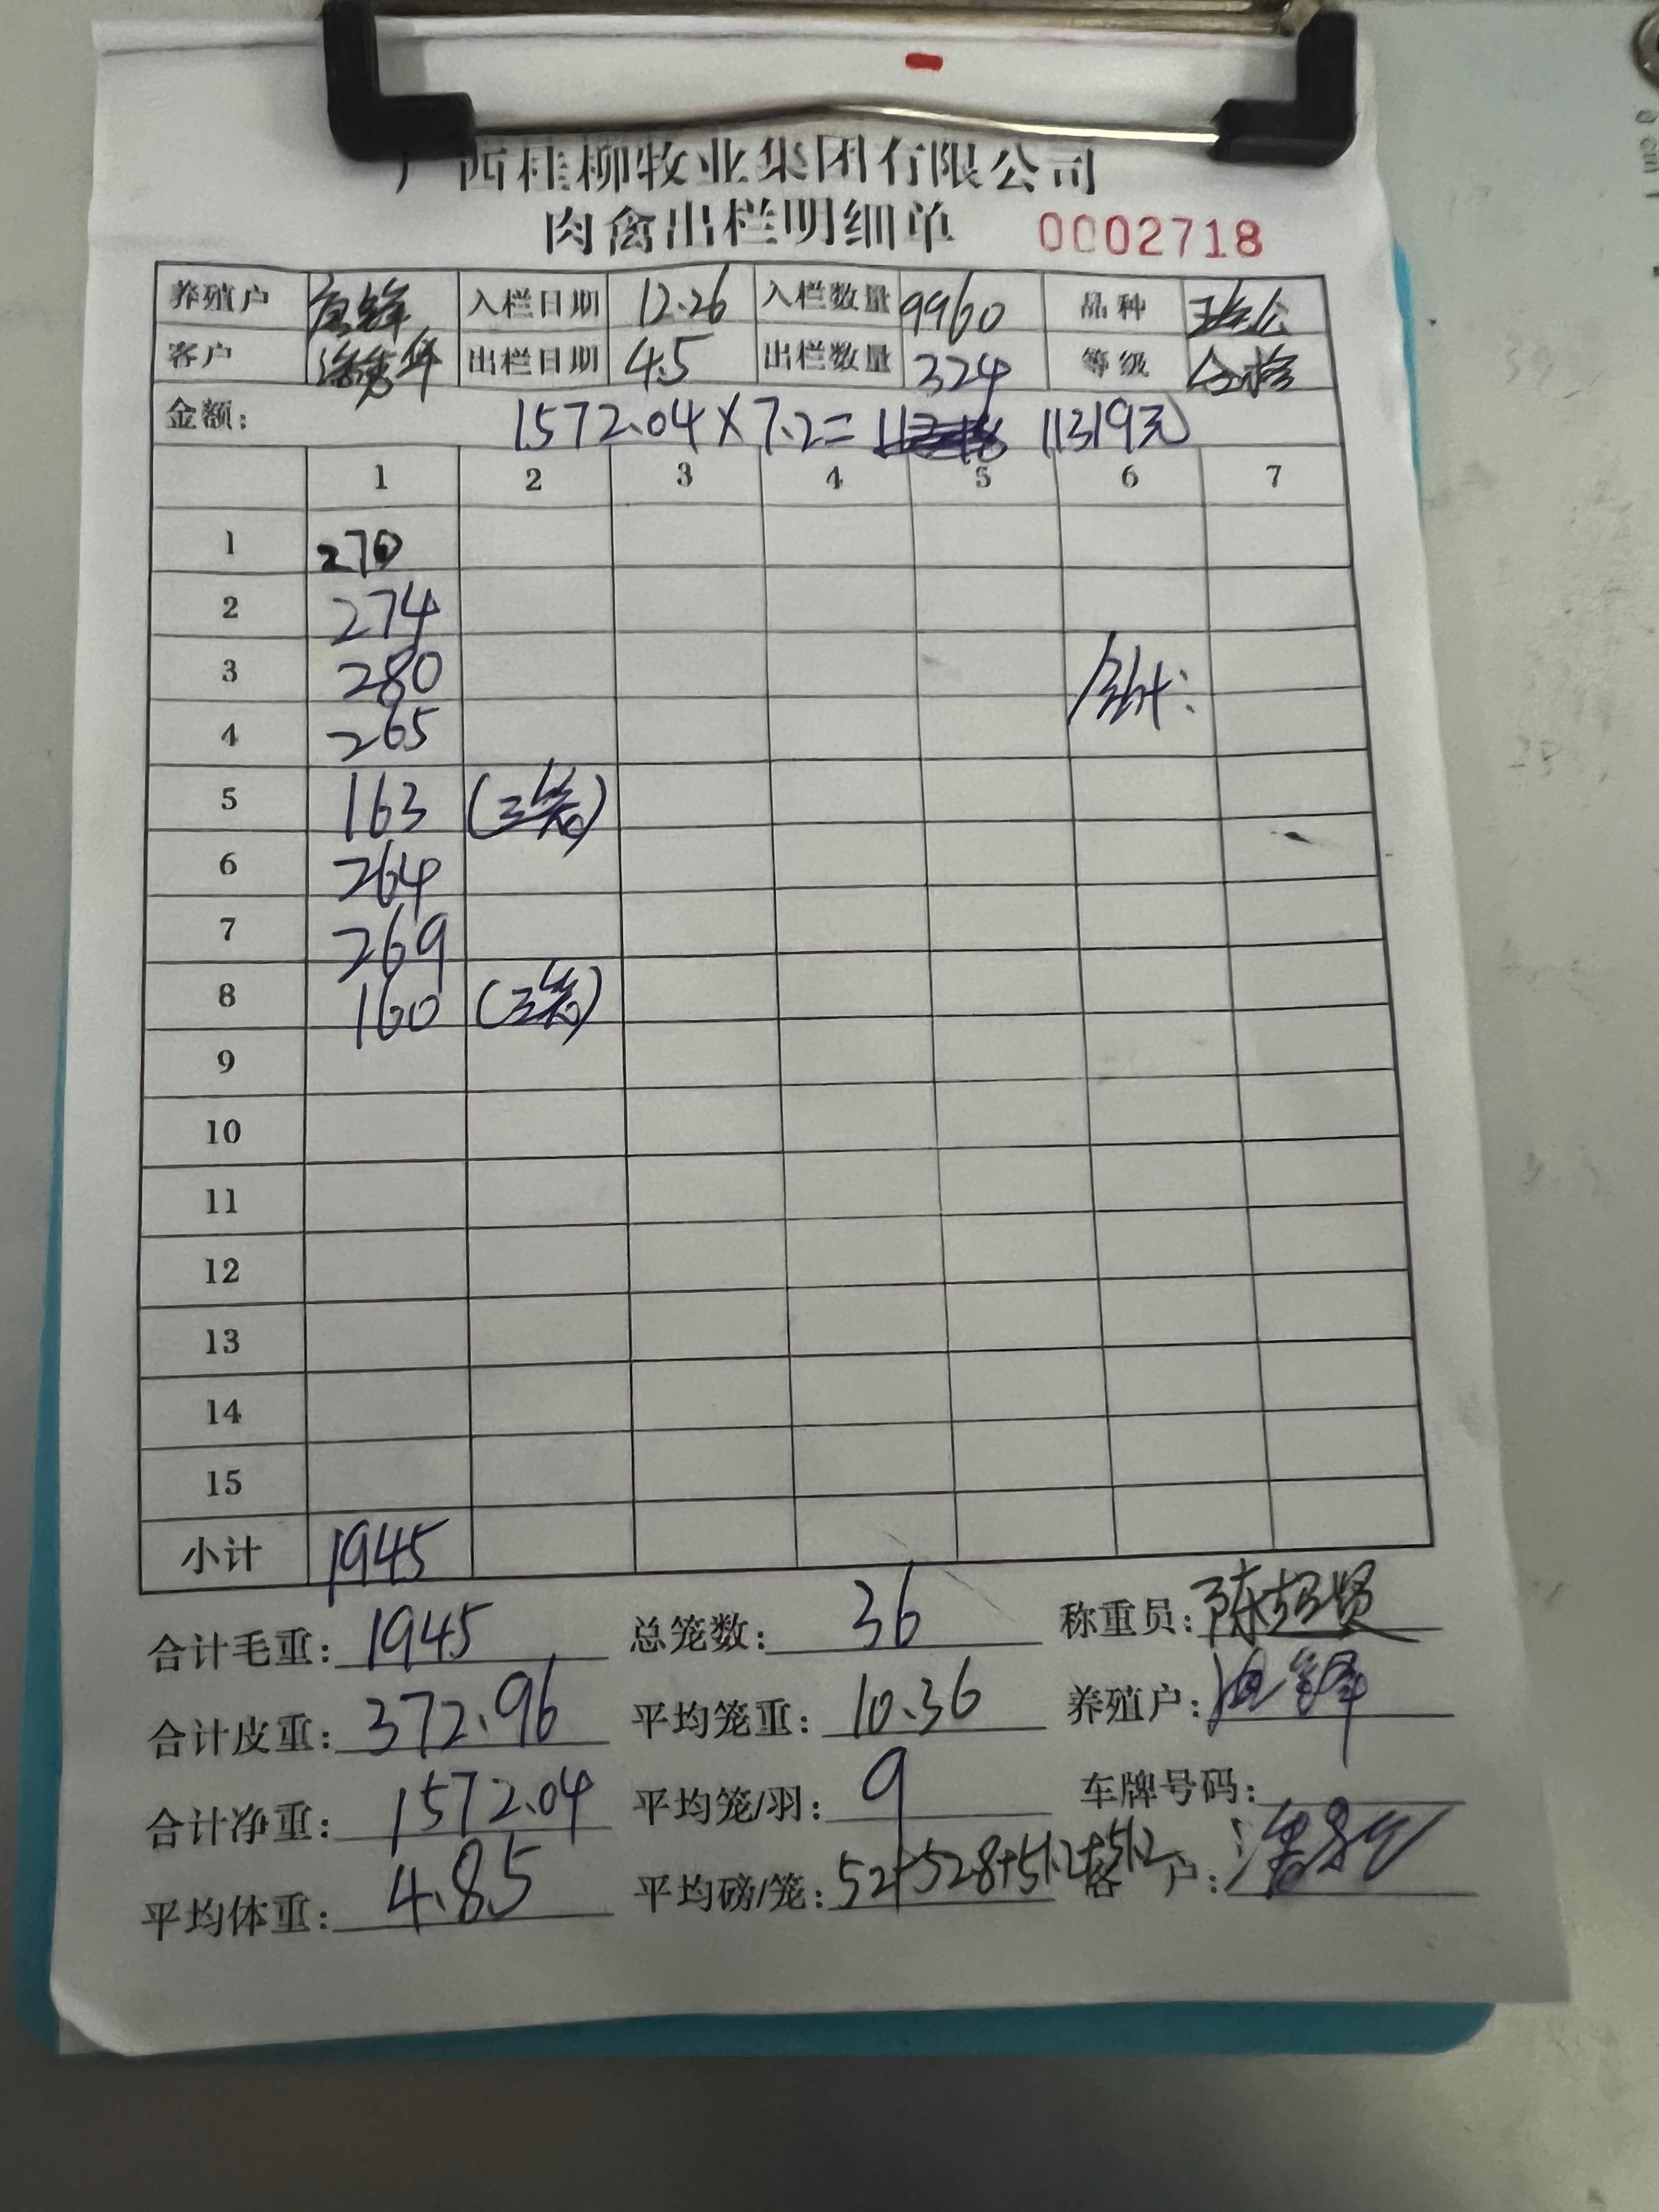 广西桂柳牧业集团有限公司
肉禽出栏明细单 0002718
养殖户 入栏日期 12.26 入栏数量 9960 品种
客户 出栏日期 4.5 出栏数量 324 等级 合格
金额: 1572.04×7.2= 11319元
1 2 3 4 5 6 7
1 270
2 274
3 280
4 265
5 163 (三笼)
6 264
7 269
8 160 (三笼)
9
10
11
12
13
14
15
小计 1945
合计毛重: 1945 总笼数: 36 称重员: 陈超贤
合计皮重: 372.96 平均笼重: 10.36 养殖户:
合计净重: 1572.04 平均笼/羽: 9 车牌号码:
平均体重: 4.85 平均磅/笼: 52+52.8+51.2+51.2 客户: